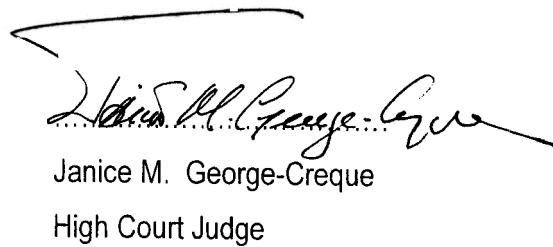 Janice M. George-Creque
Janice M. George-Creque
High Court Judge